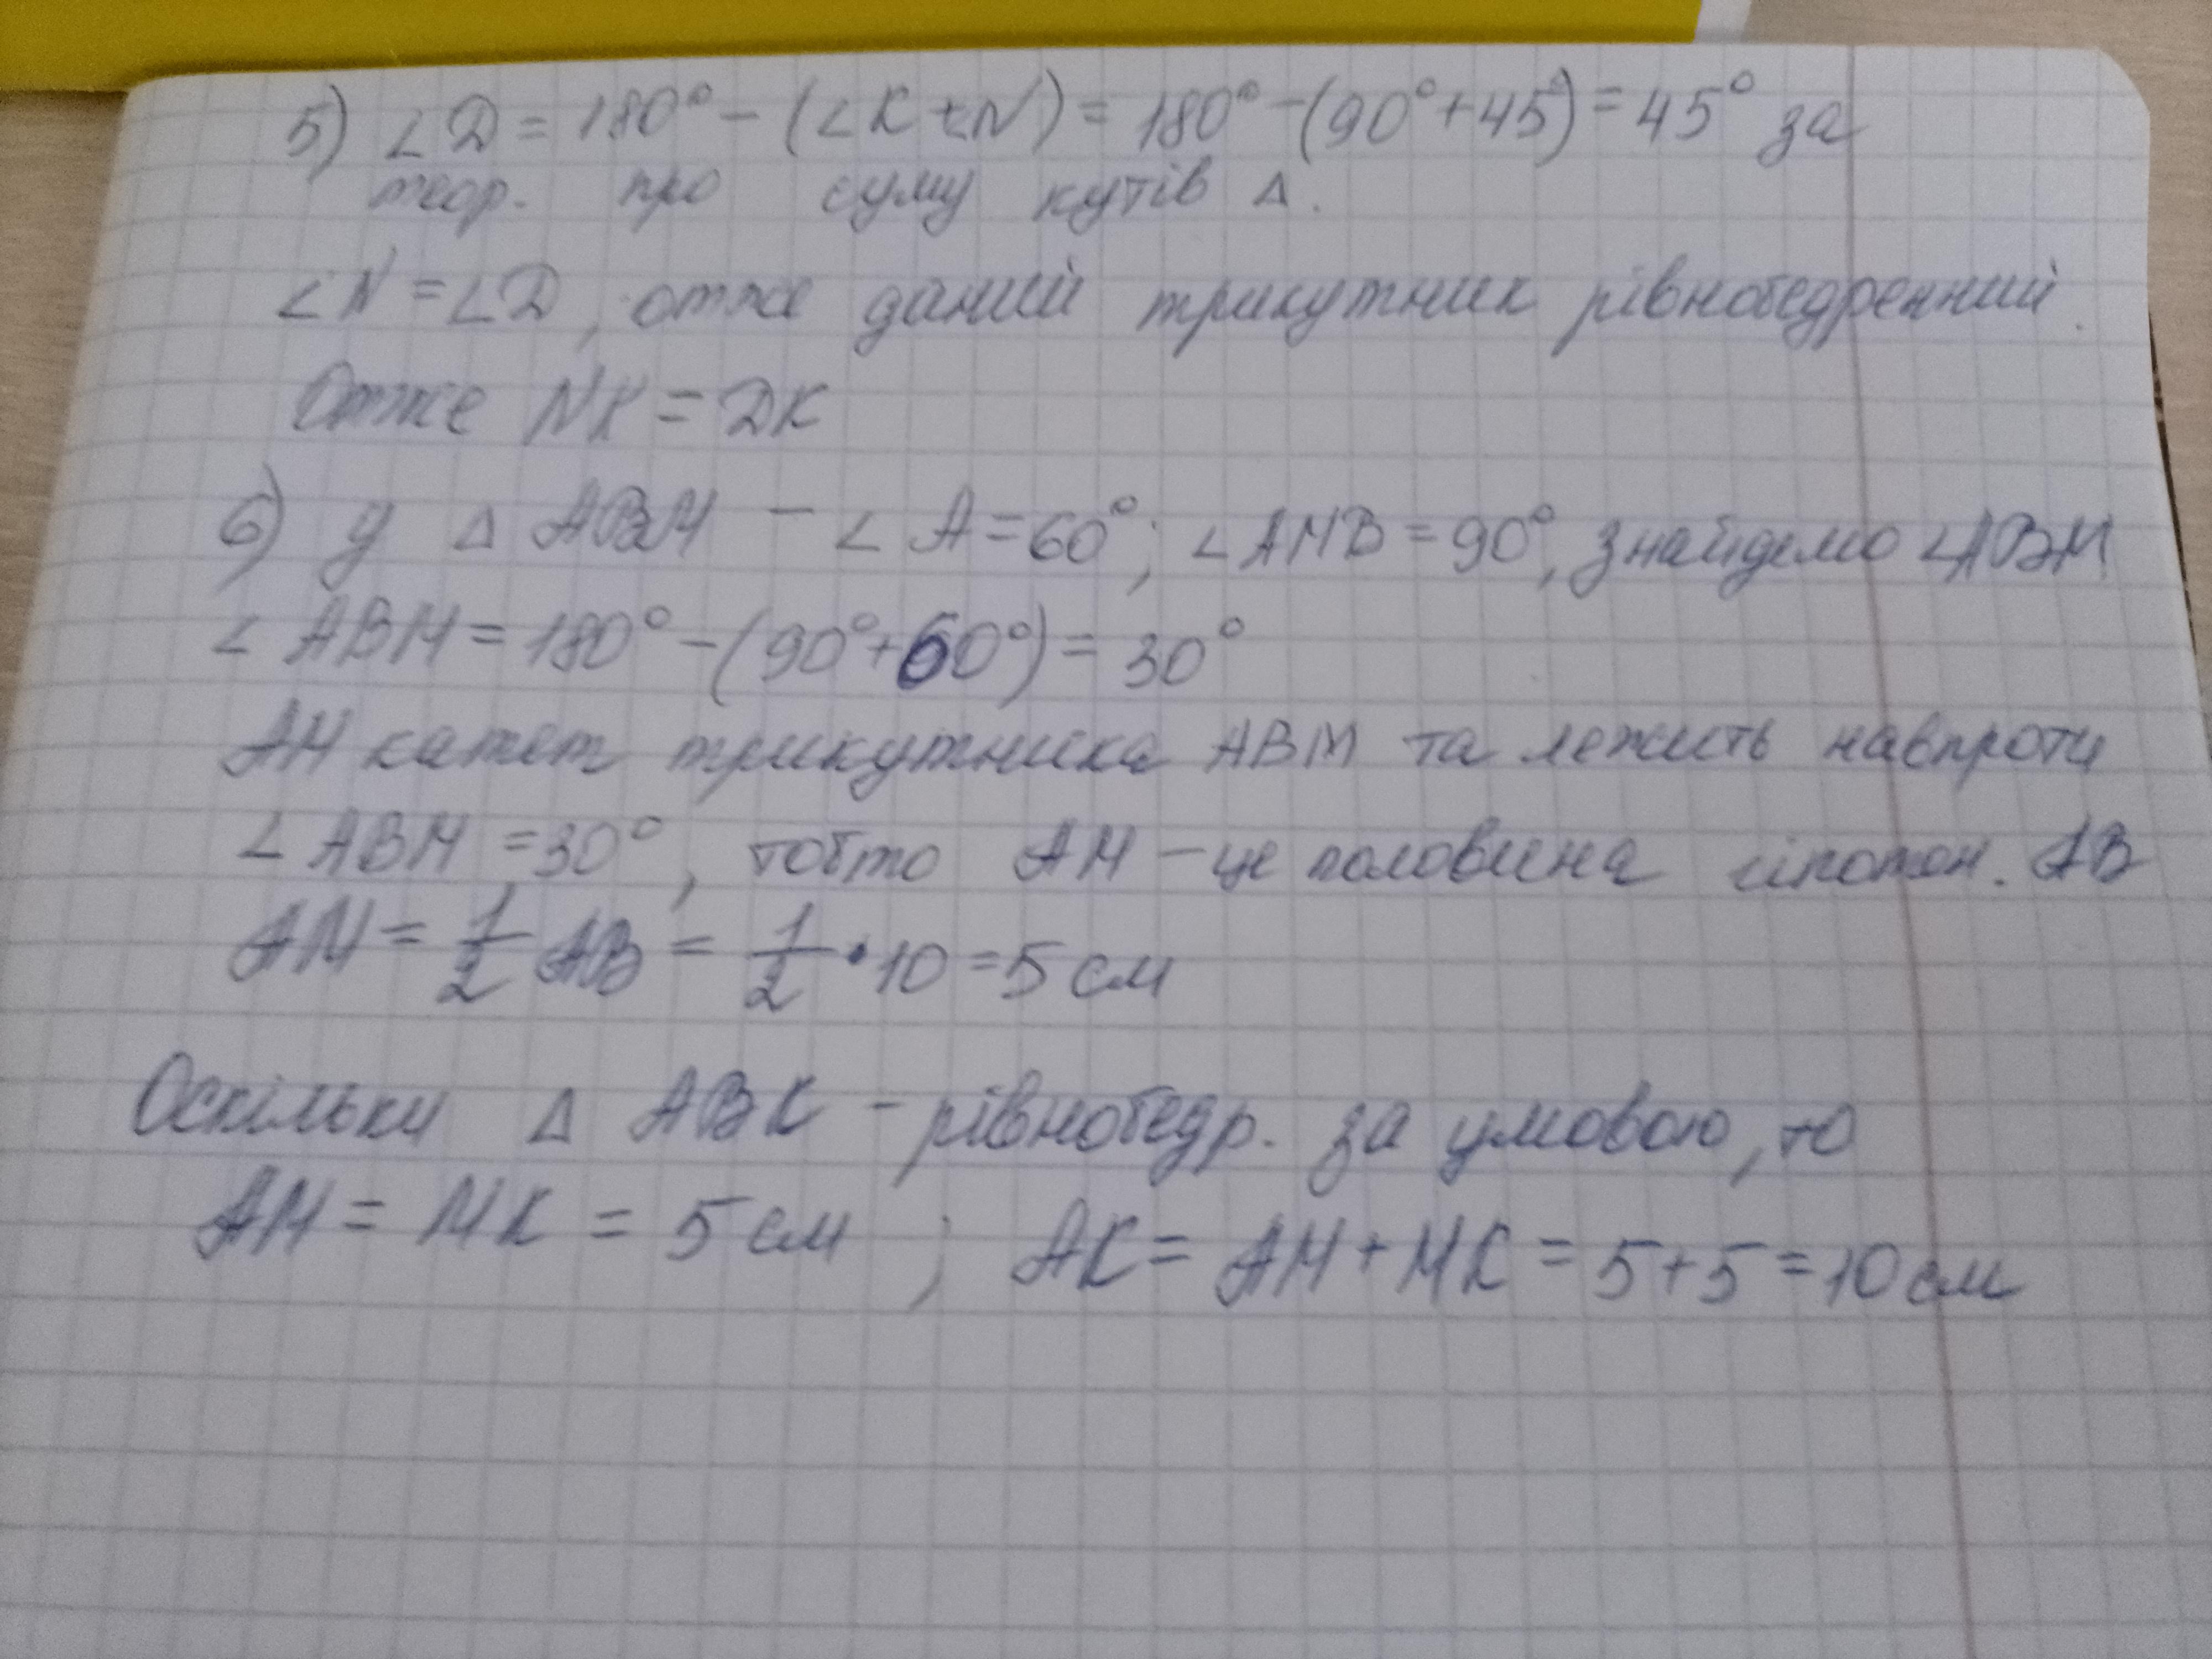 5) ∠D = 180° - (∠K+∠N) = 180° - (90°+45°) = 45° за
теор. про суму кутів Δ.
∠N = ∠D, отже даний трикутник рівнобедренний.
Отже NK = DK
6) у Δ ABM - ∠A = 60°; ∠AMB = 90°, знайдемо ∠ABM
∠ABM = 180° - (90°+60°) = 30°
AM катет трикутника ABM та лежить навпроти
∠ABM = 30°, тобто AM - це половина гіпотен. AB
AM = 1/2 AB = 1/2 · 10 = 5 см
Оскільки Δ ABK - рівнобедр. за умовою, то
AM = MK = 5 см ; AK = AM + MK = 5+5 = 10 см